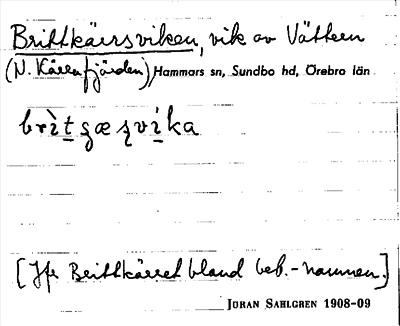 Brittkärrsviken, vik av Vättern
(N. Kärrafjärden), Hammars sn, Sundbo hd, Örebro län
[Jfr Brittkärret bland beb.-namnen.]
JÖRAN SAHLGREN 1908-09